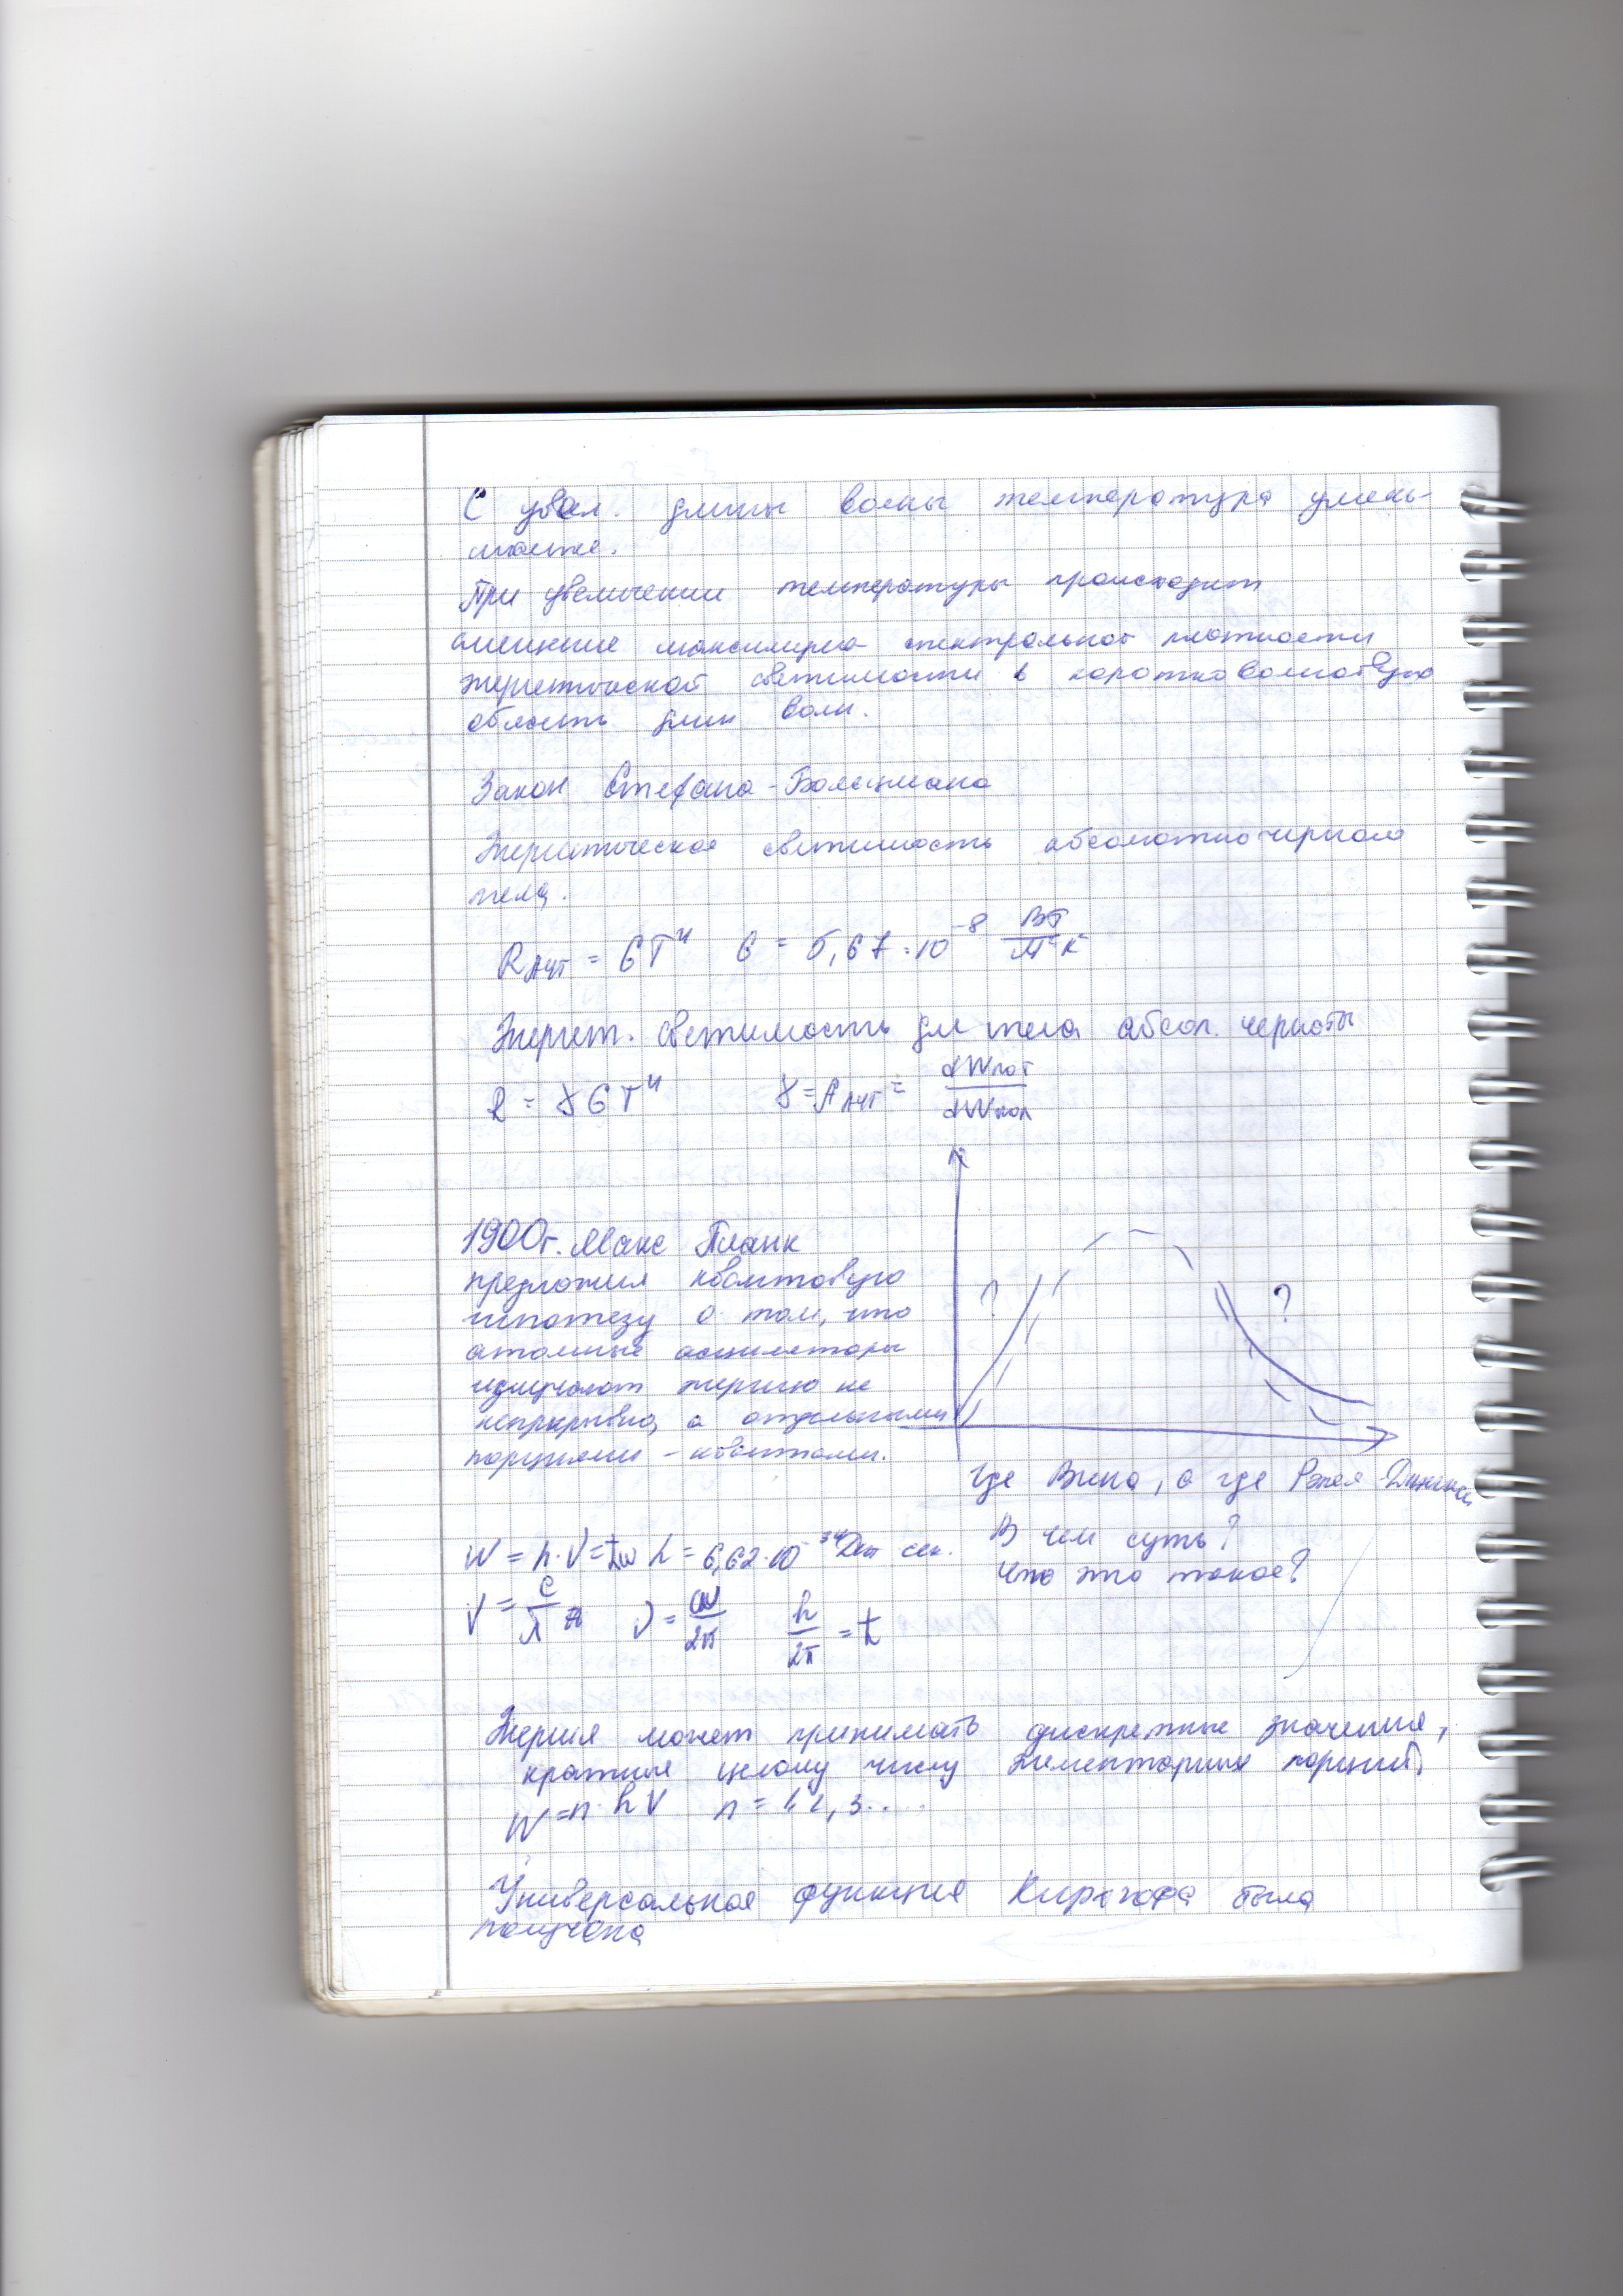 С увел. длины волны температура умень-
шается.
При увеличении температуры происходит
смещение максимума спектральной плотности
энергетической светимости в коротковолновую
область длин волн.
Закон Стефана-Больцмана
Энергетическая светимость абсолютно черного
тела.
R_АЧТ = σT⁴ σ = 5,67·10⁻⁸ Вт/м²К
Энергет. светимость для тела абсол. черноты
R = γσT⁴ γ = A_АЧТ = dWпог/dWпад
1900г. Макс Планк
предложил квантовую
гипотезу о том, что
атомные осцилляторы
излучают энергию не
непрерывно, а отдельными
порциями - квантами.
? ?
Где Вина, а где Рэлея Джинса
В чем суть?
Что это такое?
W = h·ν = ħω h = 6,62·10⁻³⁴ Дж сек.
ν = c/λ ν = ω/2π h/2π = ħ
Энергия может принимать дискретные значения,
кратные целому числу элементарных порций
W = n·hν n = 1, 2, 3....
Универсальная функция Кирхгофа была
получена